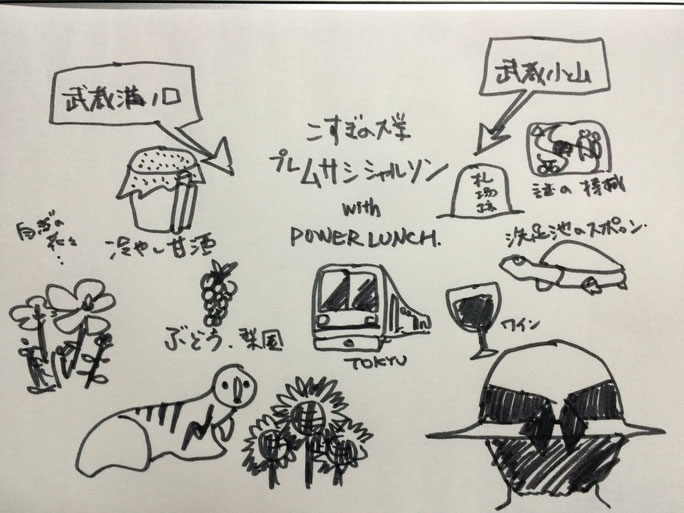 武蔵溝ノ口
武蔵小山
こすぎの大学
プレムサシシャルソン
with
POWER LUNCH.
札場跡
謎の機械
洗足池のスッポン
冷やし甘酒
自然の
花々
…
ぶどう、梨園
TOKYU
ワイン